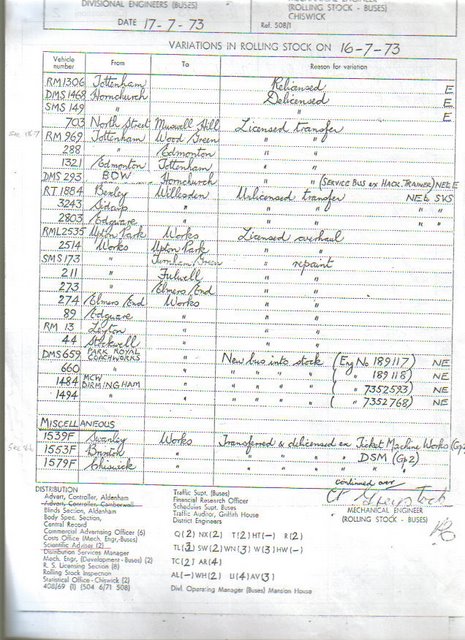 DIVISIONAL ENGINEERS (BUSES)
(ROLLING STOCK - BUSES)
CHISWICK
DATE 17-7-73
Ref. 508/1
VARIATIONS IN ROLLING STOCK ON 16-7-73
Vehicle number From To Reason for variation
RM1306 Tottenham Relicensed E
DMS 1468 Hornchurch Delicensed E
SMS 149 " " E
703 North Street Muswell Hill Licensed transfer
RM 969 Tottenham Wood Green " "
288 " Edmonton " "
1321 Edmonton Tottenham " "
DMS 293 BCW Hornchurch " " (SERVICE BUS EX HACK. TRAINER) NEb E
RT. 1884 Bexley Willesden Unlicensed transfer NEb SVS
3243 Sidcup " " " " "
2803 Edgware " " " " "
RML2535 Upton Park Works Licensed overhaul
2514 Works Upton Park " "
SMS 173 " Turnham Green " repaint
211 " Fulwell " "
273 " Elmers End " "
274 Elmers End Works " "
89 Edgware " " "
RM 13 Leyton " " "
44 Stockwell " " "
DMS 659 PARK ROYAL COACHWORKS New bus into stock (Eng No 189117) NE
660 " " " " " ( " 189118) NE
1484 MCW BIRMINGHAM " " " " ( " 7352593) NE
1494 " " " " " ( " 7352768) NE
MISCELLANEOUS
1539F Swanley Works Transferred & delicensed ex Ticket Machine Works (Gp2)
1553F Brixton " " " " DSM (Gp2)
1579F Chiswick " " " " " "
continued over
DISTRIBUTION
Advert. Controller, Aldenham
Advert. Controller, Camberwell
Blinds Section, Aldenham
Body Spec. Section,
Central Record
Commercial Advertising Officer (6)
Costs Office (Mech. Engr.-Buses)
Scientific Adviser (2)
Distribution Services Manager
Mech. Engr. (Development - Buses) (2)
R. S. Licensing Section (8)
Rolling Stock Inspection
Statistical Office - Chiswick (2)
408/69 (1) (504 6/71 508)
Traffic Supt. (Buses)
Financial Research Officer
Schedules Supt. Buses
Traffic Auditor, Griffith House
District Engineers
Q(2) NX(2) T(2) HT(-) R(2)
TL(3) SW(2) WN(3) W(3) HW(-)
TC(2) AR(4)
AL(-) WH(2) U(4) AV(3)
Divl. Operating Manager (Buses) Mansion House
MECHANICAL ENGINEER
(ROLLING STOCK - BUSES)